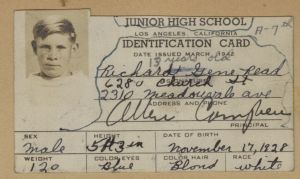 JUNIOR HIGH SCHOOL A-7th
LOS ANGELES, CALIFORNIA
IDENTIFICATION CARD
DATE ISSUED MARCH 1942
13 years old
Richard Gene Read
6280 St
2310 Meadowvale ave
ADDRESS AND PHONE
Allen Campbell
PRINCIPAL
SEX HEIGHT DATE OF BIRTH
Male 5ft 3in November 17, 1928
WEIGHT COLOR EYES COLOR HAIR RACE
120 Blue Blond white